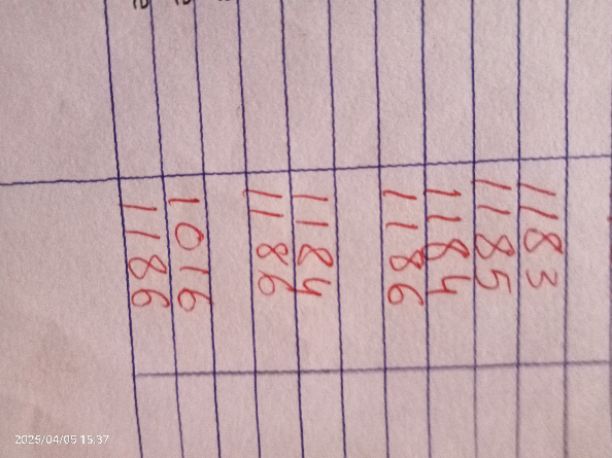 1183
1185
1184
1186
1184
1186
1016
1186
2025/04/05 15:37